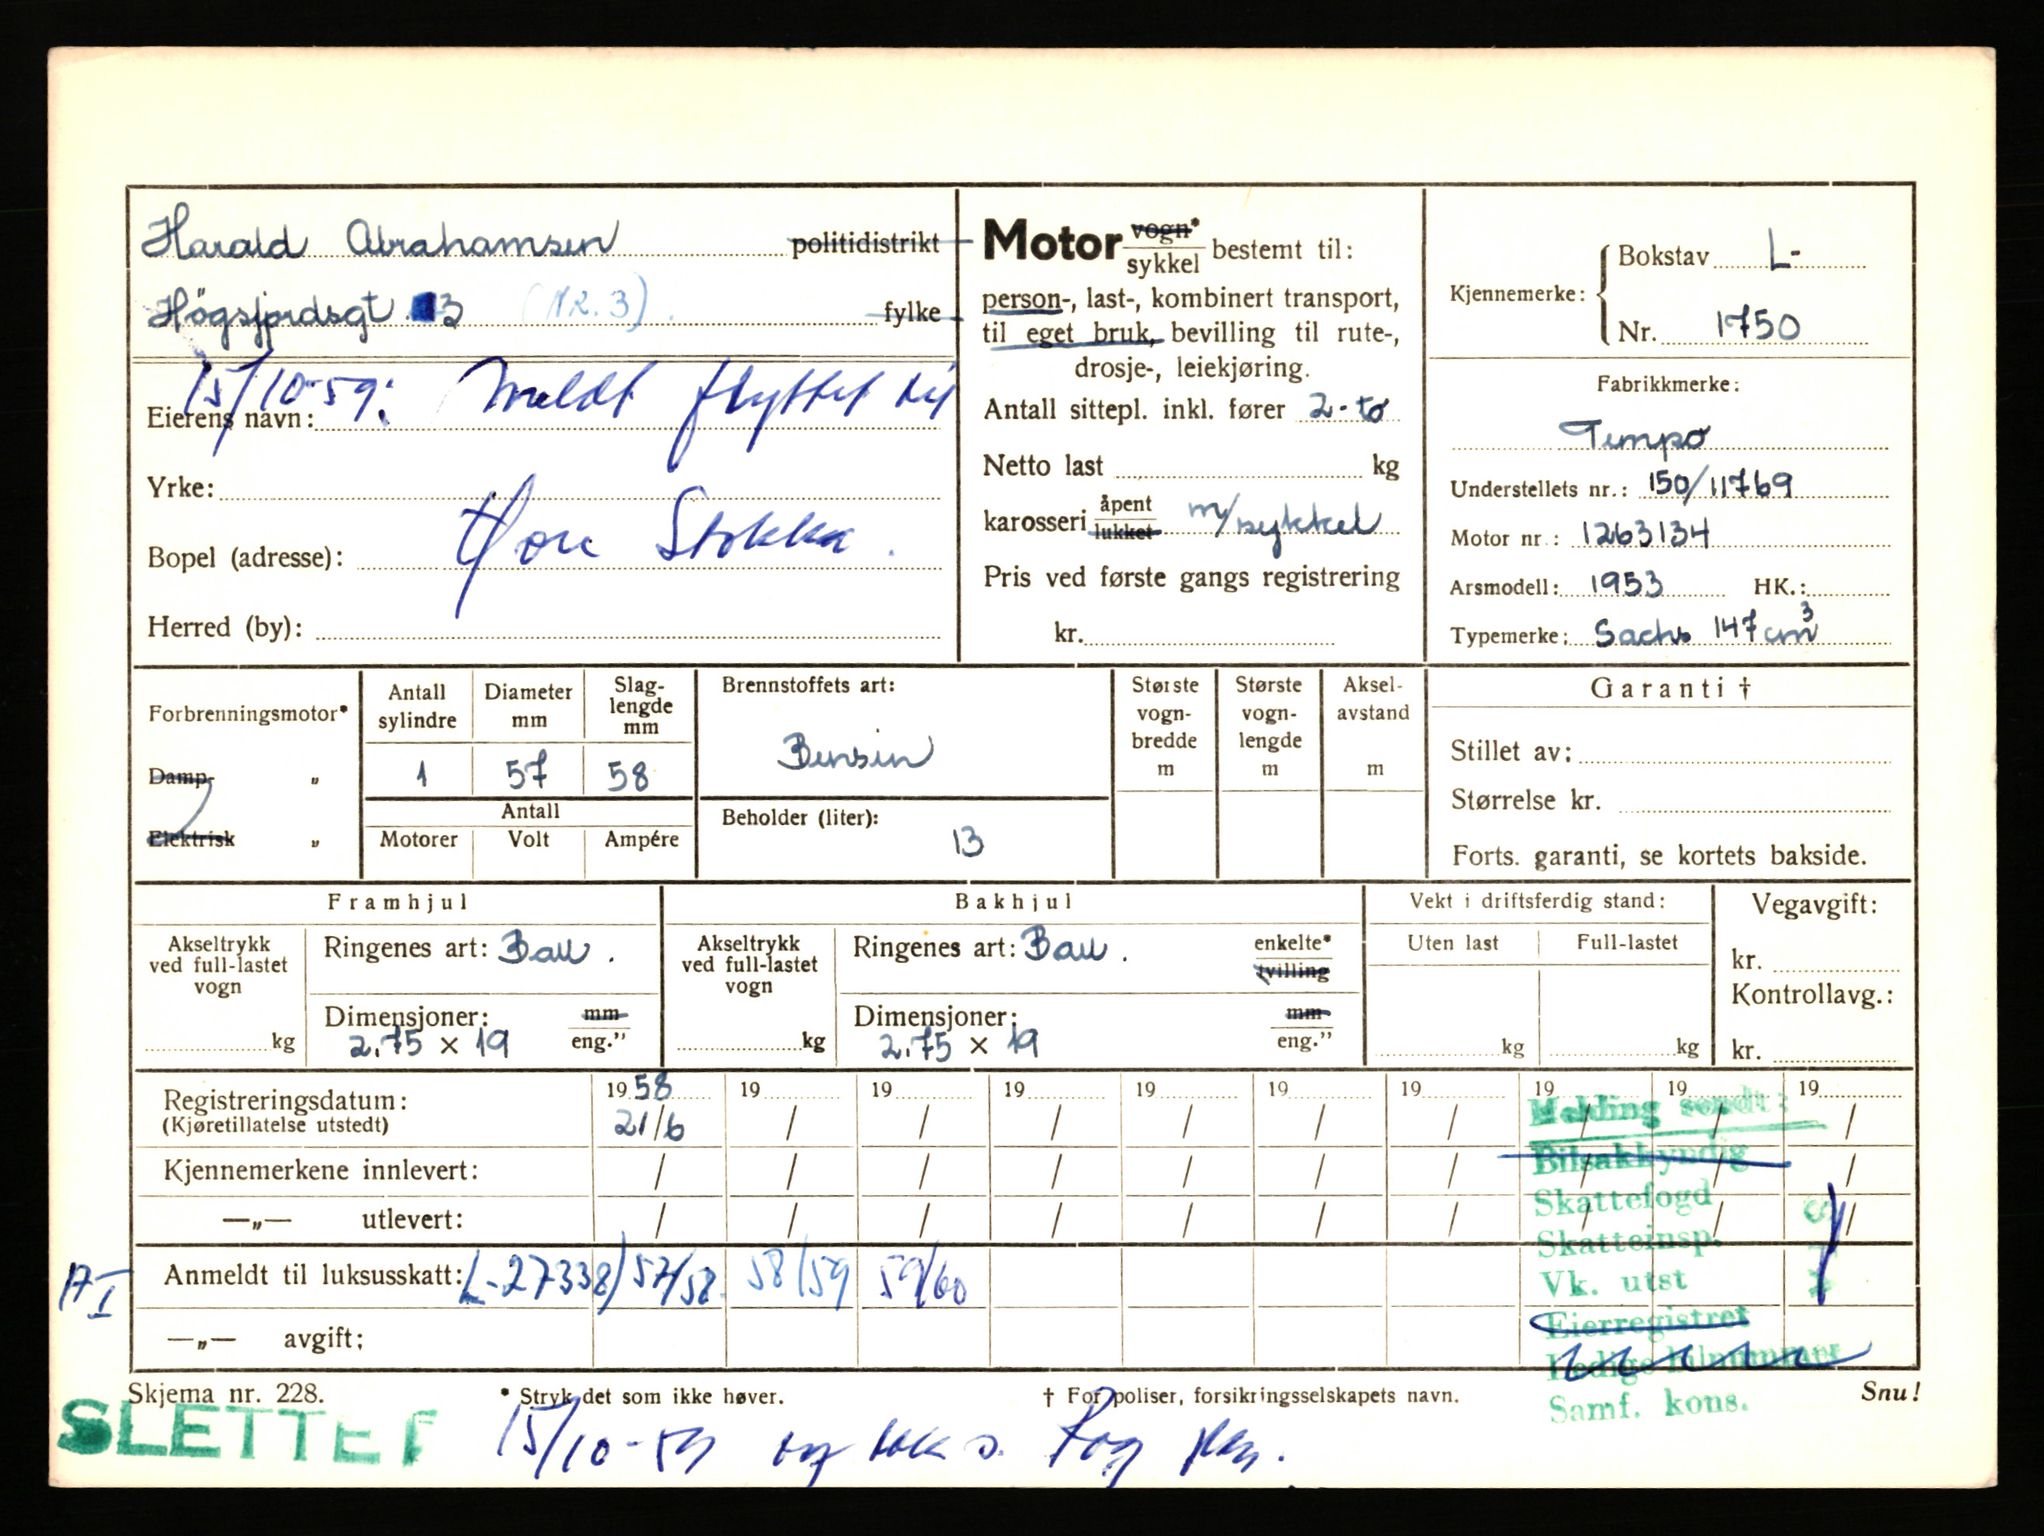 Harald Abrahamsen politidistrikt
Högsfjordsgt 3 (NR. 3) fylke
15/10-59: Meldt flyttet til
Eierens navn:
Yrke:
Store Stokka.
Bopel (adresse):
Herred (by):
Motor vogn* sykkel bestemt til:
person-, last-, kombinert transport,
til eget bruk, bevilling til rute-,
drosje-, leiekjøring.
Antall sittepl. inkl. fører 2-to
Netto last kg
karosseri åpent lukket m/sykkel
Pris ved første gangs registrering
kr.
Kjennemerke: Bokstav L-
Nr. 1750
Fabrikkmerke:
Tempo
Understellets nr.: 150/11769
Motor nr.: 1263134
Arsmodell: 1953 HK.:
Typemerke: Sachs 147 cm³
Forbrenningsmotor*
Damp- "
Elektrisk "
Antall sylindre
Diameter mm
Slag-lengde mm
1 57 58
Antall
Motorer Volt Ampére
Brennstoffets art:
Bensin
Beholder (liter):
13
Største vogn-bredde m
Største vogn-lengde m
Aksel-avstand m
Garanti †
Stillet av:
Størrelse kr.
Forts. garanti, se kortets bakside.
Framhjul
Akseltrykk ved full-lastet vogn
kg
Ringenes art: Ball.
Dimensjoner: mm
2.75 x 19 eng."
Bakhjul
Akseltrykk ved full-lastet vogn
kg
Ringenes art: Ball. enkelte* tvilling
Dimensjoner: mm
2.75 x 19 eng."
Vekt i driftsferdig stand:
Uten last Full-lastet
kg kg
Vegavgift:
kr.
Kontrollavg.:
kr.
Registreringsdatum: 1958 19 19 19 19 19 19 19 19 19
(Kjøretillatelse utstedt) 21/6 / / / / / / / / /
Kjennemerkene innlevert: / / / / / / / / / /
—„— utlevert: / / / / / / / / / /
Anmeldt til luksusskatt: L-27338/57/58 58/59 59/60
—„— avgift:
Melding sendt:
Bilsakkyndig
Skattefogd
Skatteinsp.
Vk. utst
Eierregistret
Ledige bilnummer
Samf. kons.
Skjema nr. 228.
* Stryk det som ikke høver.
† For poliser, forsikringsselskapets navn.
Snu!
SLETTET
15/10-59